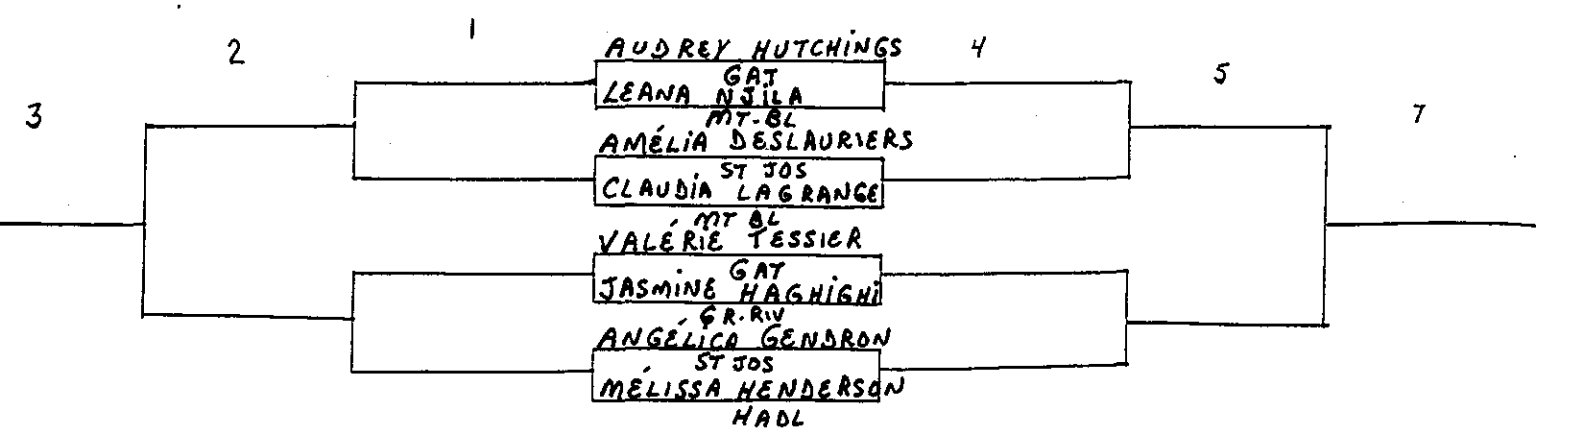 1
2
3
AUDREY HUTCHINGS
GAT
LEANA NJILA
MT-BL
AMÉLIA DESLAURIERS
ST JOS
CLAUDIA LAGRANGE
MT BL
VALÉRIE TESSIER
GAT
JASMINE HAGHIGHI
GR.RIV
ANGÉLICA GENDRON
ST JOS
MÉLISSA HENDERSON
HADL
4
5
7